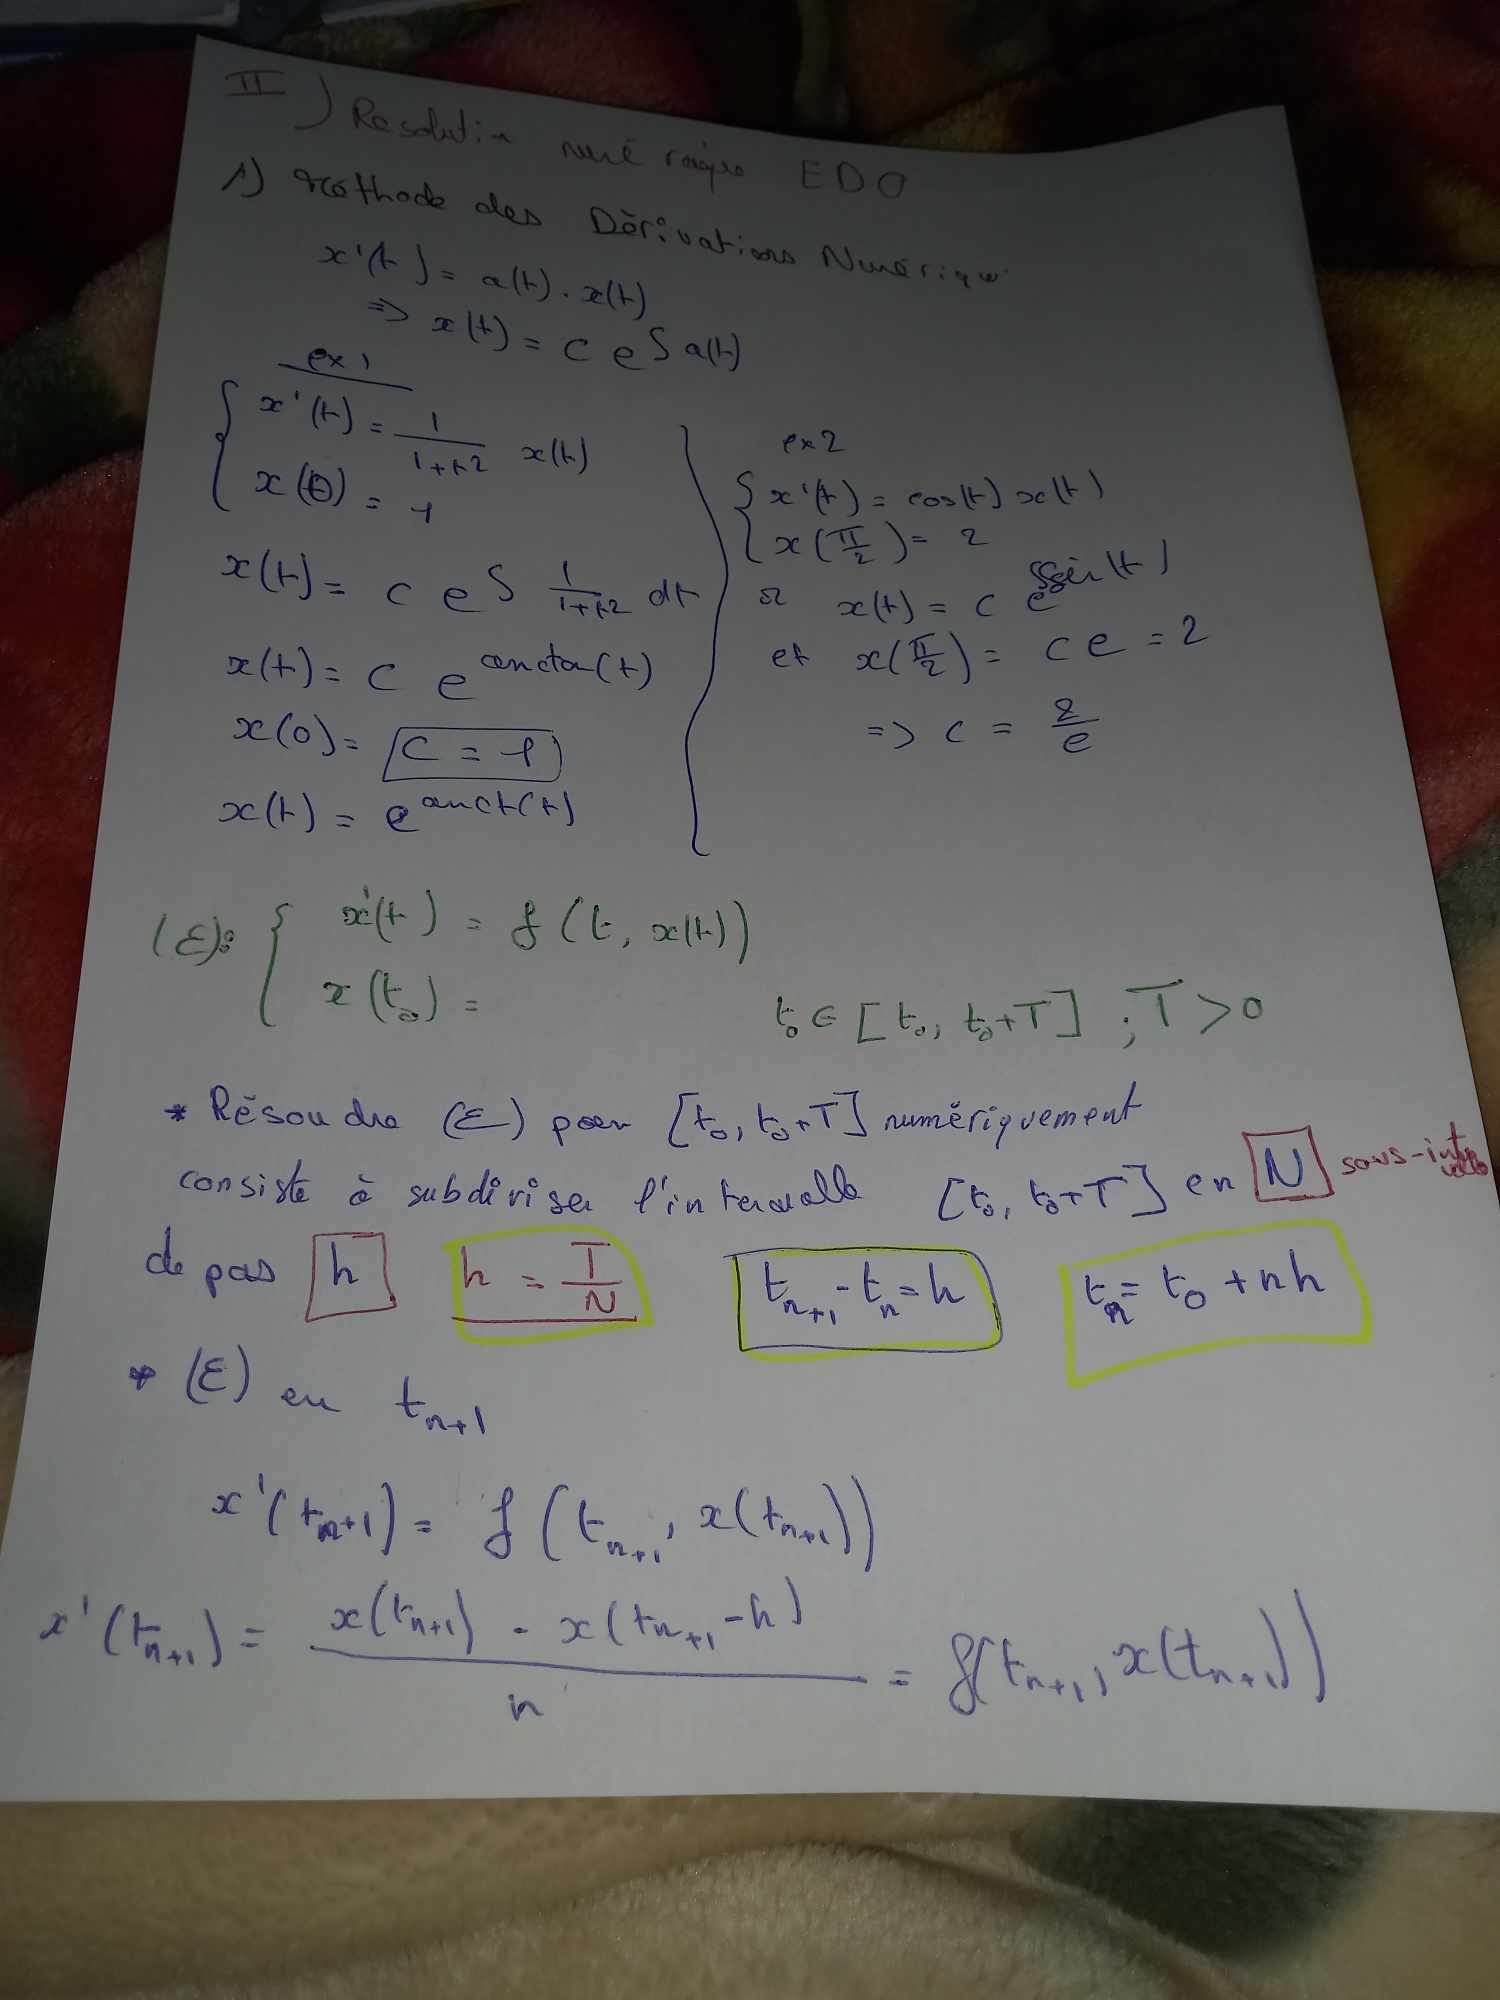 II) Resolution numérique EDO
1) Méthode des Dérivations Numérique
x'(t) = a(t) . x(t)
=> x(t) = c e^∫a(t)
ex 1
{ x'(t) = 1/(1+t²) x(t)
x(0) = 1
x(t) = c e^∫ 1/(1+t²) dt
x(t) = c e^arctan(t)
x(0) = c = 1
x(t) = e^arct(t)
ex 2
{ x'(t) = cos(t) x(t)
x(π/2) = 2
x(t) = c e^sin(t)
et x(π/2) = c e = 2
=> c = 2/e
(E): { x'(t) = f(t, x(t))
x(t₀) = t₀ ∈ [t₀, t₀+T] ; T > 0
* Résoudre (E) pour [t₀, t₀+T] numériquement
consiste à subdiviser l'intervalle [t₀, t₀+T] en N sous-intervalle
de pas h h = T/N tₙ₊₁ - tₙ = h tₙ = t₀ + nh
* (E) en tₙ₊₁
x'(tₙ₊₁) = f(tₙ₊₁, x(tₙ₊₁))
x'(tₙ₊₁) = (x(tₙ₊₁) - x(tₙ₊₁ - h))/h = f(tₙ₊₁, x(tₙ₊₁))